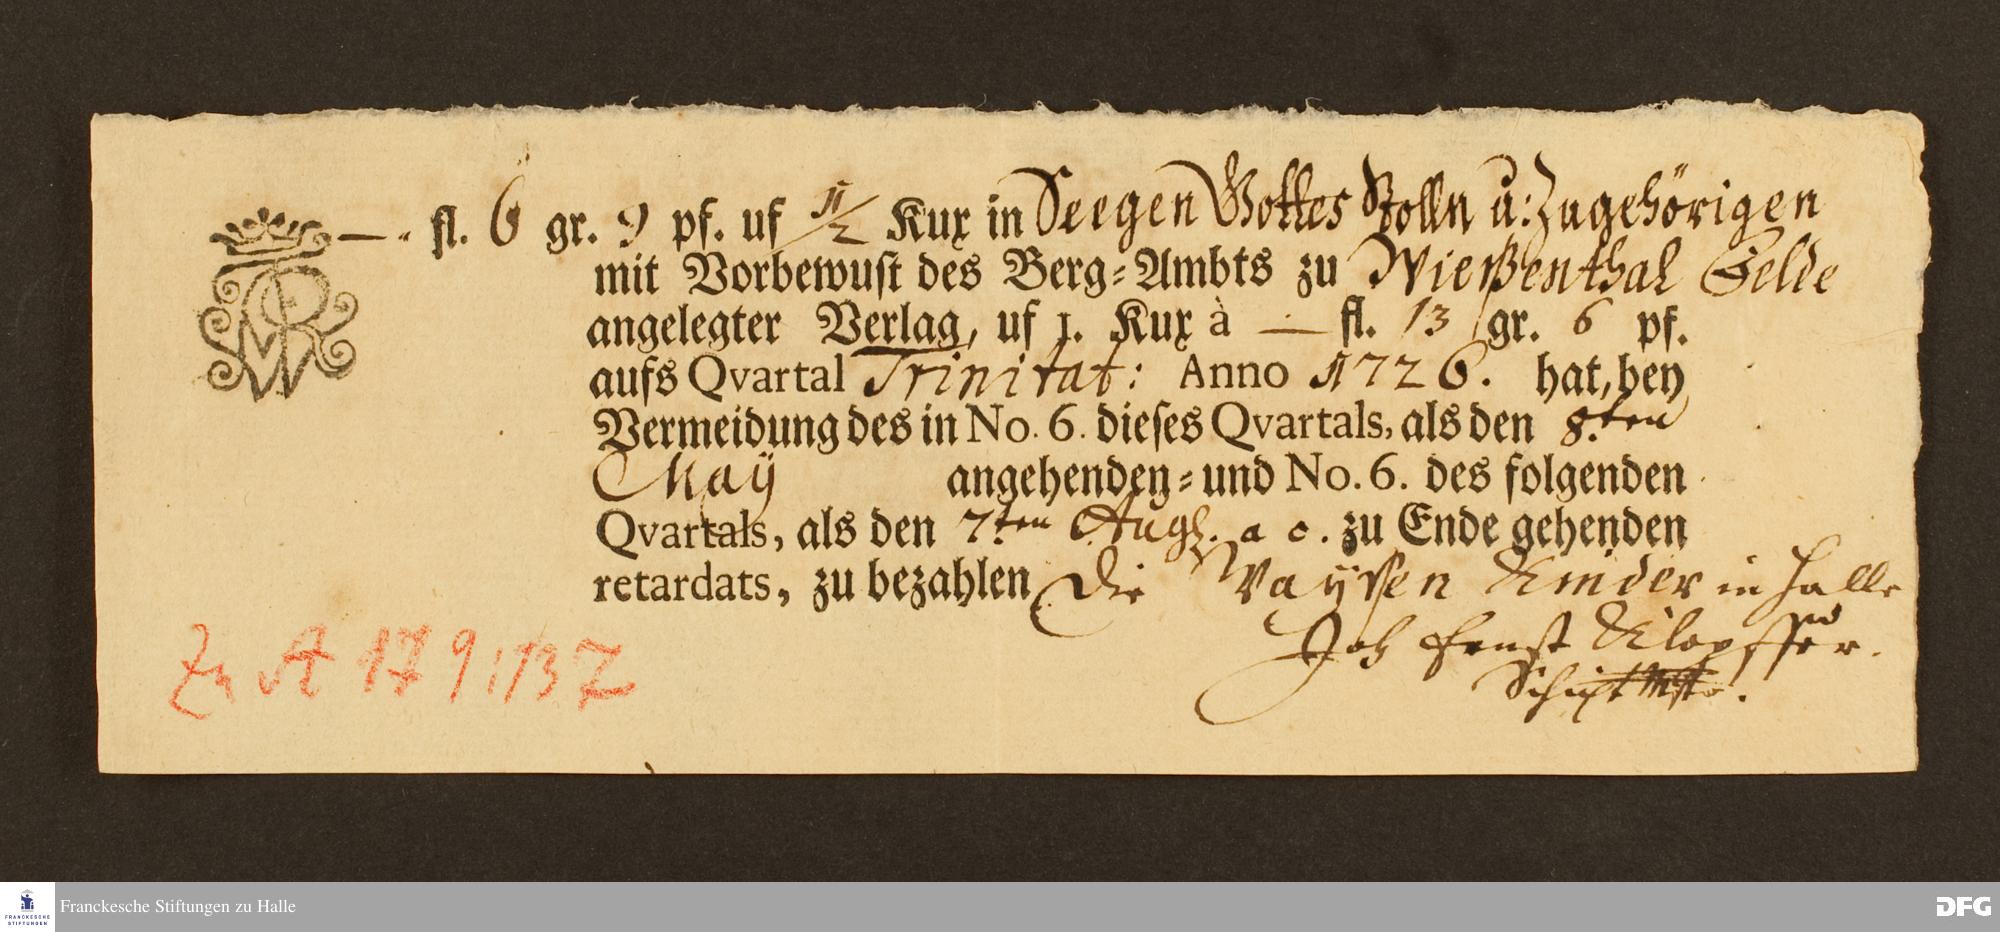 — fl. 6 gr. 9 pf. uf 1/2 Kux in Seegen Gottes Stolln u: Zugehörigen
mit Vorbewust des Berg-Ambts zu Wießenthal Selde
angelegter Verlag, uf 1. Kux à — fl. 13 gr. 6 pf.
aufs Qvartal Trinitat: Anno 1726. hat, bey
Vermeidung des in No. 6. dieses Qvartals, als den 8.ten
May angehenden- und No. 6. des folgenden
Qvartals, als den 7.ten Aug. a c. zu Ende gehenden
retardats, zu bezahlen Die Wayssen Kinder in Halle
Joh Ernst Klopffer.
Schichtmstr.
Zu A 179:137
Franckesche Stiftungen zu Halle
FRANCKESCHE
STIFTUNGEN
DFG